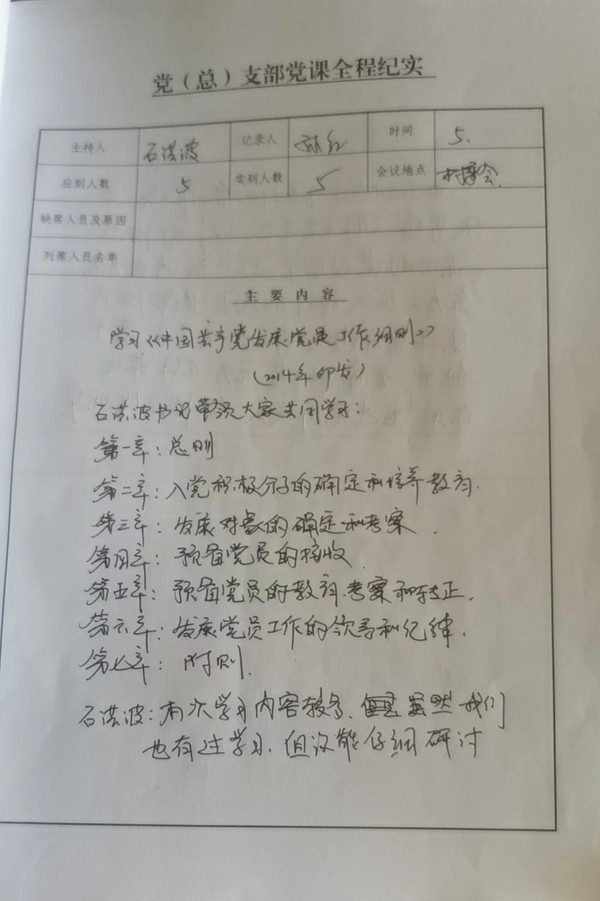 党（总）支部党课全程纪实
主持人 石洪波 记录人 时间 5.
应到人数 5 实到人数 5 会议地点 村委会
缺席人员及原因
列席人员名单
主要内容
学习《中国共产党发展党员工作细则》
（2014年印发）
石洪波书记带领大家共同学习：
第一章：总则
第二章：入党积极分子的确定和培养教育.
第三章：发展对象的确定和考察.
第四章：预备党员的接收.
第五章：预备党员的教育.考察和转正.
第六章：发展党员工作的领导和纪律.
第七章：附则.
石洪波：本次学习内容较多. 虽然我们
也有过学习. 但没能仔细研讨